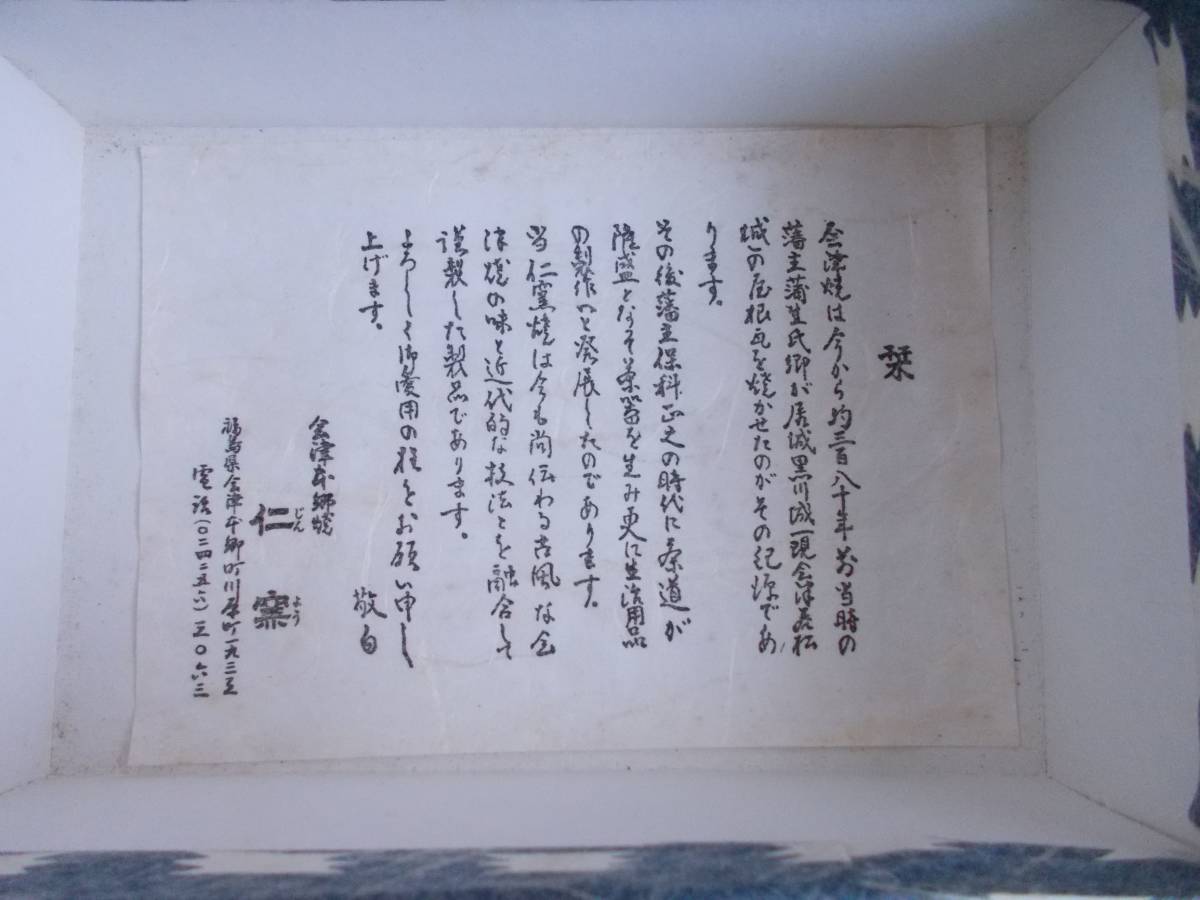 栞
会津焼は今から約三百八十年前当時の
藩主蒲生氏郷が居城黒川城(現会津若松
城)の屋根瓦を焼かせたのがその起源であ
ります。
その後藩主保科正之の時代に茶道が
隆盛となって茶器を生み更に生活用品
の製作へと発展したのであります。
当仁窯焼は今も尚伝わる古風な会
津焼の味と近代的な技法とを融合して
謹製した製品であります。
よろしく御愛用の程をお願い申し
上げます。
敬白
会津本郷焼
仁窯
じんよう
福島県会津本郷町川原町一九三二
電話(〇二四二五六)三〇六三